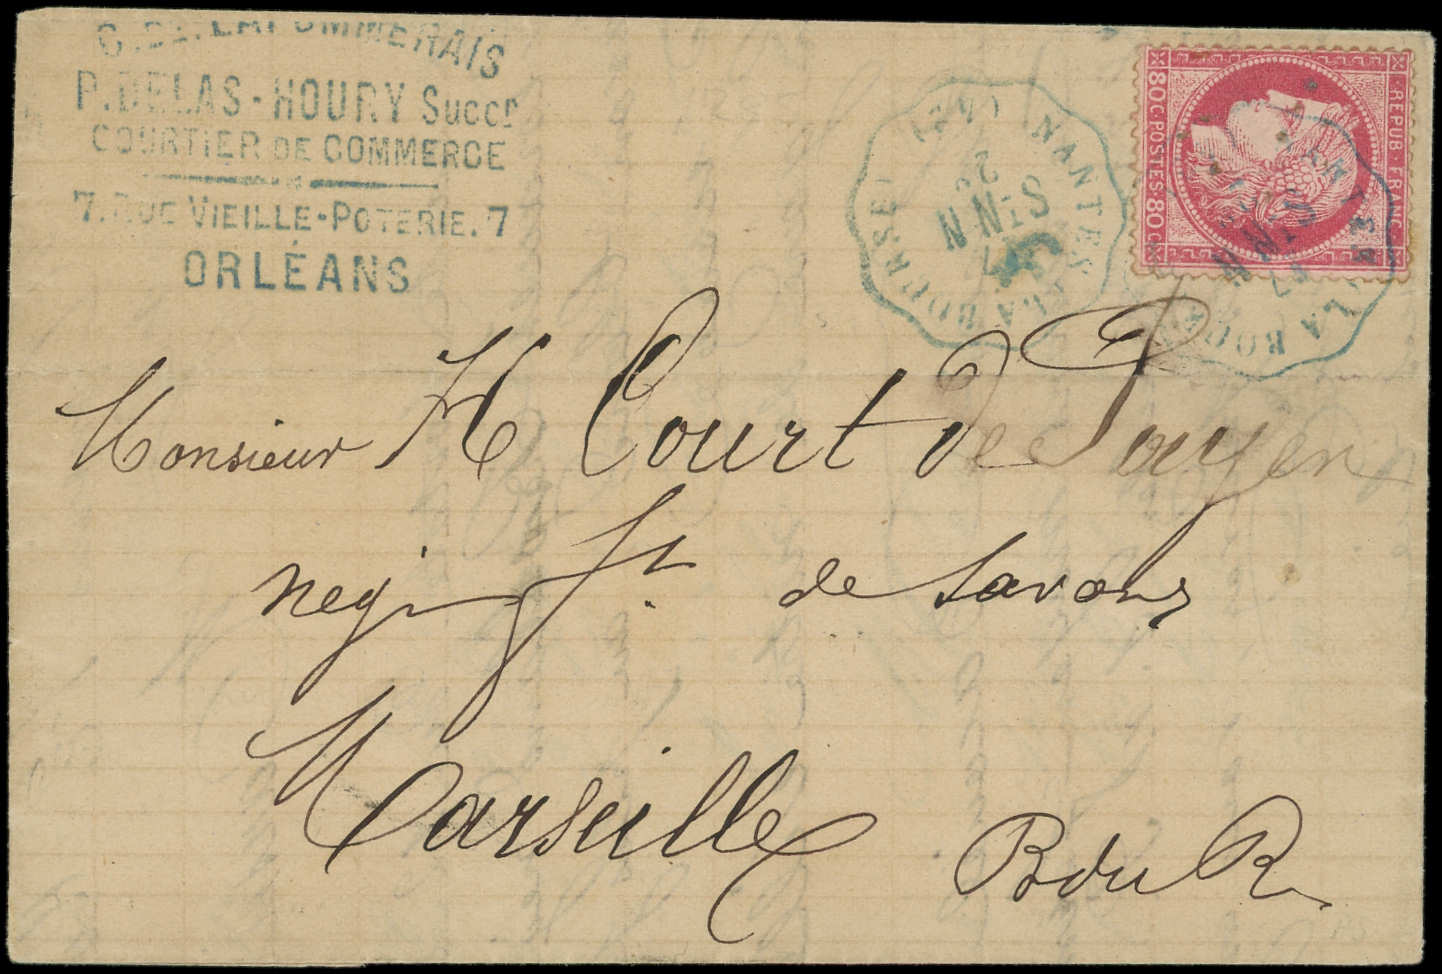 P. DELAS-HOURY Succr
COURTIER DE COMMERCE
7. RUE VIEILLE-POTERIE. 7
ORLÉANS
NANTES LA BOURSE (42)
2
STNN
80C POSTES 80C
REPUB FRANC
Monsieur H Court de Payen
negt
de Savons
Marseille
B du R